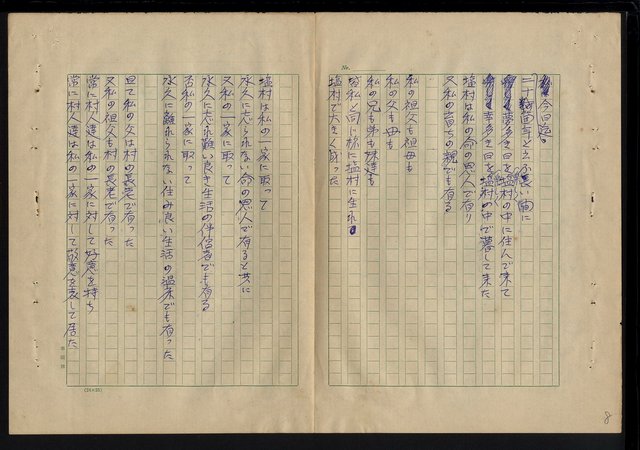 No.
今日迄
二十数箇年と云ふ長い間に
夢多き日を塩村の中に住んで来て
幸多き日を塩村の中で暮して来た
塩村は私の命の恩人で有り
又私の育ちの親でも有る
私の祖父も祖母も
私の父も母も
私の兄も弟も妹達も
皆私と同じ様に塩村に生れ
塩村で大きく成った
塩村は私の一家に取って
永久に忘れられない命の恩人で有ると共に
又私の一家に取って
永久に忘れ難い良き生活の伴侶者でも有る
否私の一家に取って
永久に離れられない住み良い生活の温床でも有った
且て私の父は村の長老で有った
又私の祖父も村の長老で有った
常に村人達は私の一家に対して好意を持ち
常に村人達は私の一家に対して敬意を表して居た
(24×25)
8